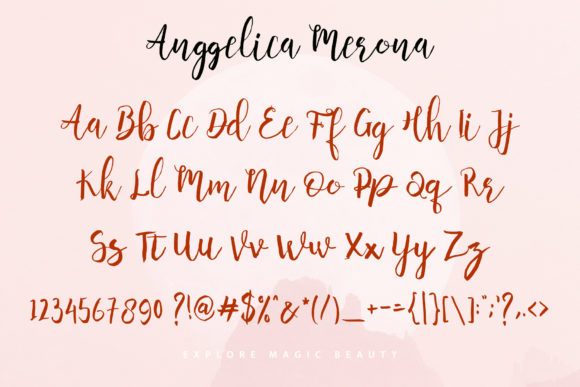 Anggelica Merona
Aa Bb Cc Dd Ee Ff Gg Hh Ii Jj
Kk Ll Mm Nn Oo Pp Qq Rr
Ss Tt Uu Vv Ww Xx Yy Zz
1234567890 ?!@#$%^&*(/)_+-={|}[\]:";'?,.<>
EXPLORE MAGIC BEAUTY